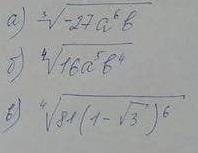 а) ∛(-27a⁶b)
б) ∜(16a⁵b⁴)
в) ∜(81(1-√3)⁶)